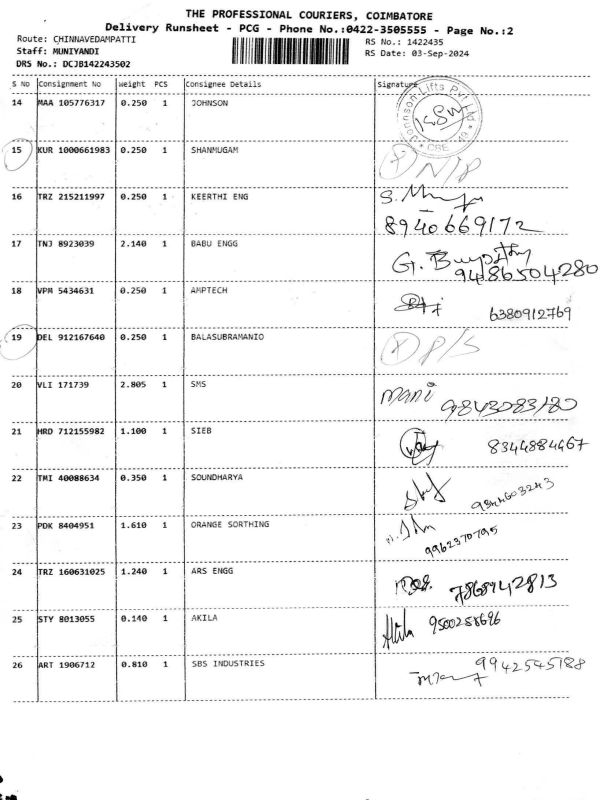 THE PROFESSIONAL COURIERS, COIMBATORE
Delivery Runsheet - PCG - Phone No.:0422-3505555 - Page No.:2
Route: CHINNAVEDAMPATTI RS No.: 1422435
Staff: MUNIYANDI RS Date: 03-Sep-2024
DRS No.: DCJB142243502
S No Consignment No Weight PCS Consignee Details Signature
14 MAA 105776317 0.250 1 JOHNSON Johnson Lifts Pvt Ltd CBE
15 KUR 1000661983 0.250 1 SHANMUGAM N/P
16 TRZ 215211997 0.250 1 KEERTHI ENG
8940669172
17 TNJ 8923039 2.140 1 BABU ENGG G.
9486504280
18 VPM 5434631 0.250 1 AMPTECH 6380912769
19 DEL 912167640 0.250 1 BALASUBRAMANIO P/S
20 VLI 171739 2.805 1 SMS mani 9843083180
21 HRD 712155982 1.100 1 SIEB 8344884467
22 TMI 40088634 0.350 1 SOUNDHARYA 9344603243
23 PDK 8404951 1.610 1 ORANGE SORTHING
9962370795
24 TRZ 160631025 1.240 1 ARS ENGG 7868942813
25 STY 8013055 0.140 1 AKILA Akila 9500258696
26 ART 1906712 0.810 1 SBS INDUSTRIES 9942545188